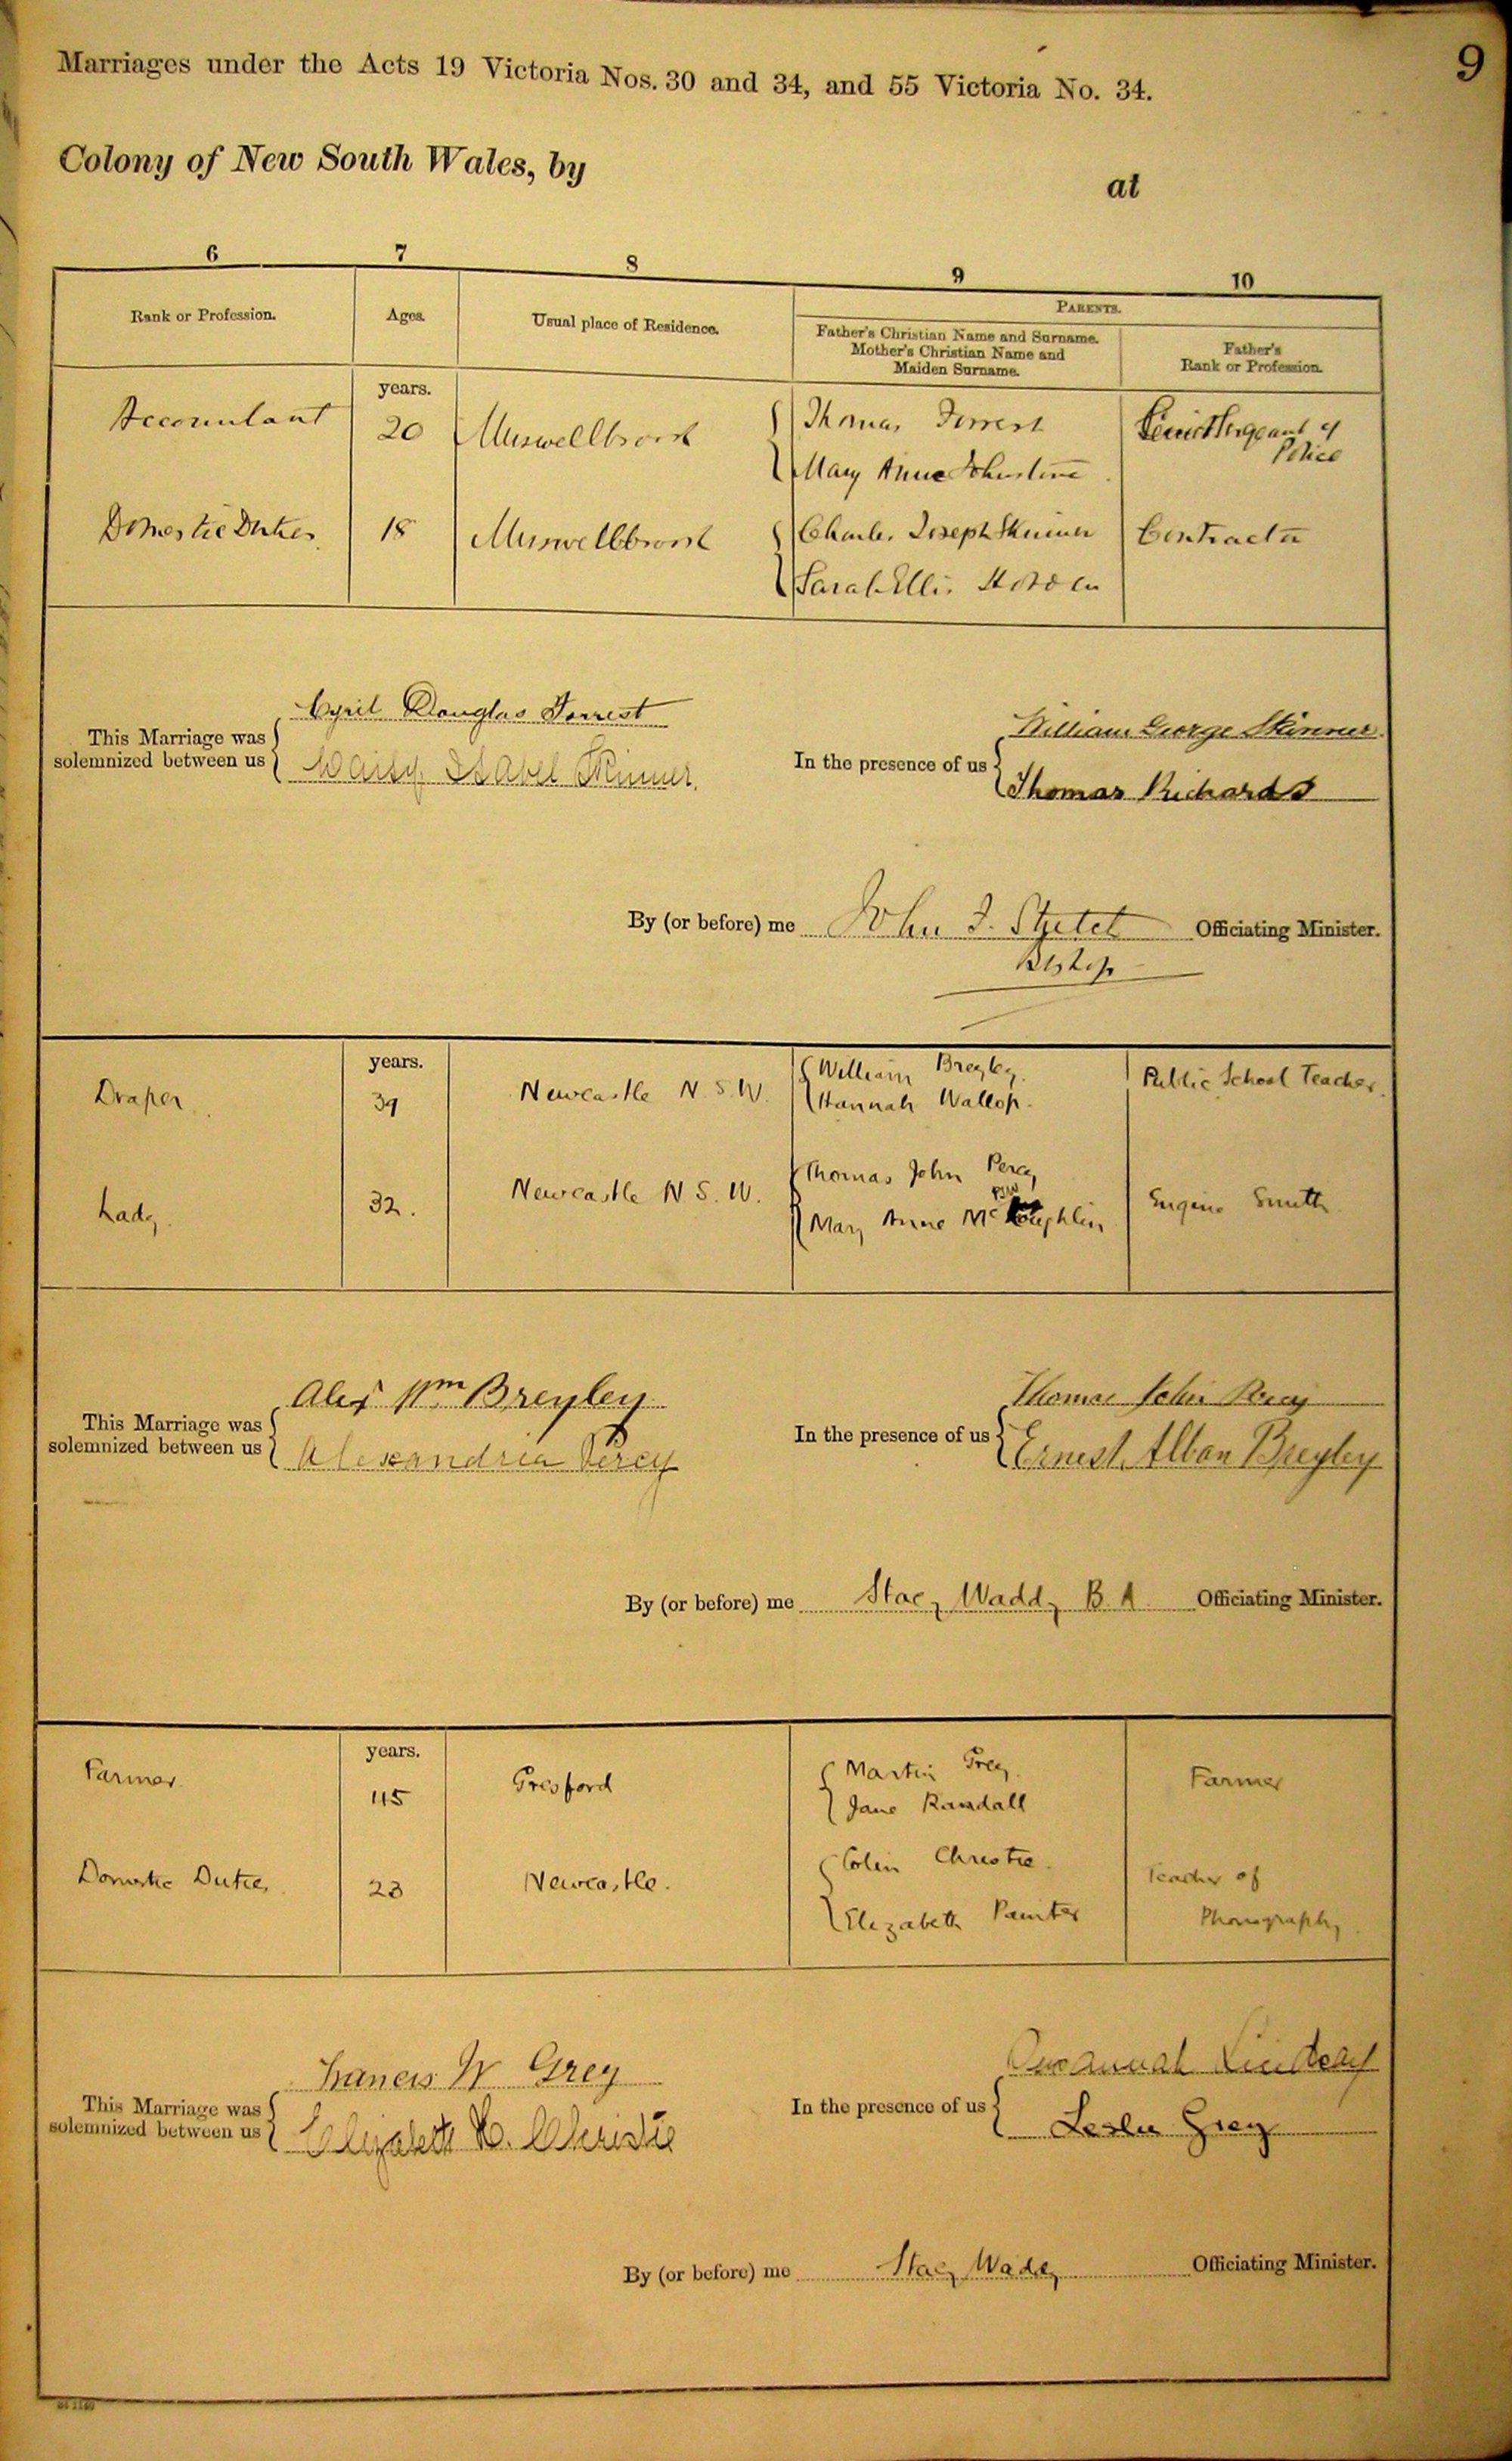 9
Marriages under the Acts 19 Victoria Nos. 30 and 34, and 55 Victoria No. 34.
Colony of New South Wales, by at
6 7 8 9 10
Rank or Profession. Ages. Usual place of Residence. PARENTS.
Father's Christian Name and Surname.
Mother's Christian Name and
Maiden Surname.
Father's
Rank or Profession.
years.
Accountant 20 Muswellbrook Thomas Forrest Senior Sergeant of
Police
Mary Anne Johnstone
Domestic Duties 18 Muswellbrook Charles Joseph Skinner Contractor
Sarah Ellis
Cyril Douglas Forrest
This Marriage was
solemnized between us
Isabel Skinner.
In the presence of us
William George Skinner.
Thomas Richards
By (or before) me John F. Stretch Officiating Minister.
Bishop
years.
Draper 39 Newcastle N.S.W. William Breyley. Public School Teacher.
Hannah Wallop.
Lady. 32. Newcastle N.S.W. Thomas John Percy Engine Smith
PSW
Mary Anne McLoughlin
Alex Wm Breyley
This Marriage was
solemnized between us
Alexandria Percy
In the presence of us
Thomas John Percy
Ernest Alban Breyley
By (or before) me Stacy Waddy B.A. Officiating Minister.
years.
Farmer 45 Gresford Martin Grey. Farmer
Jane Randall
Domestic Duties 23 Newcastle. Colin Christie. Teacher of
Phonography.
Elizabeth Painter
Francis W Grey
This Marriage was
solemnized between us
Elizabeth H. Christie
In the presence of us
Susannah Lindsay
Leslie Grey
By (or before) me Stacy Waddy Officiating Minister.